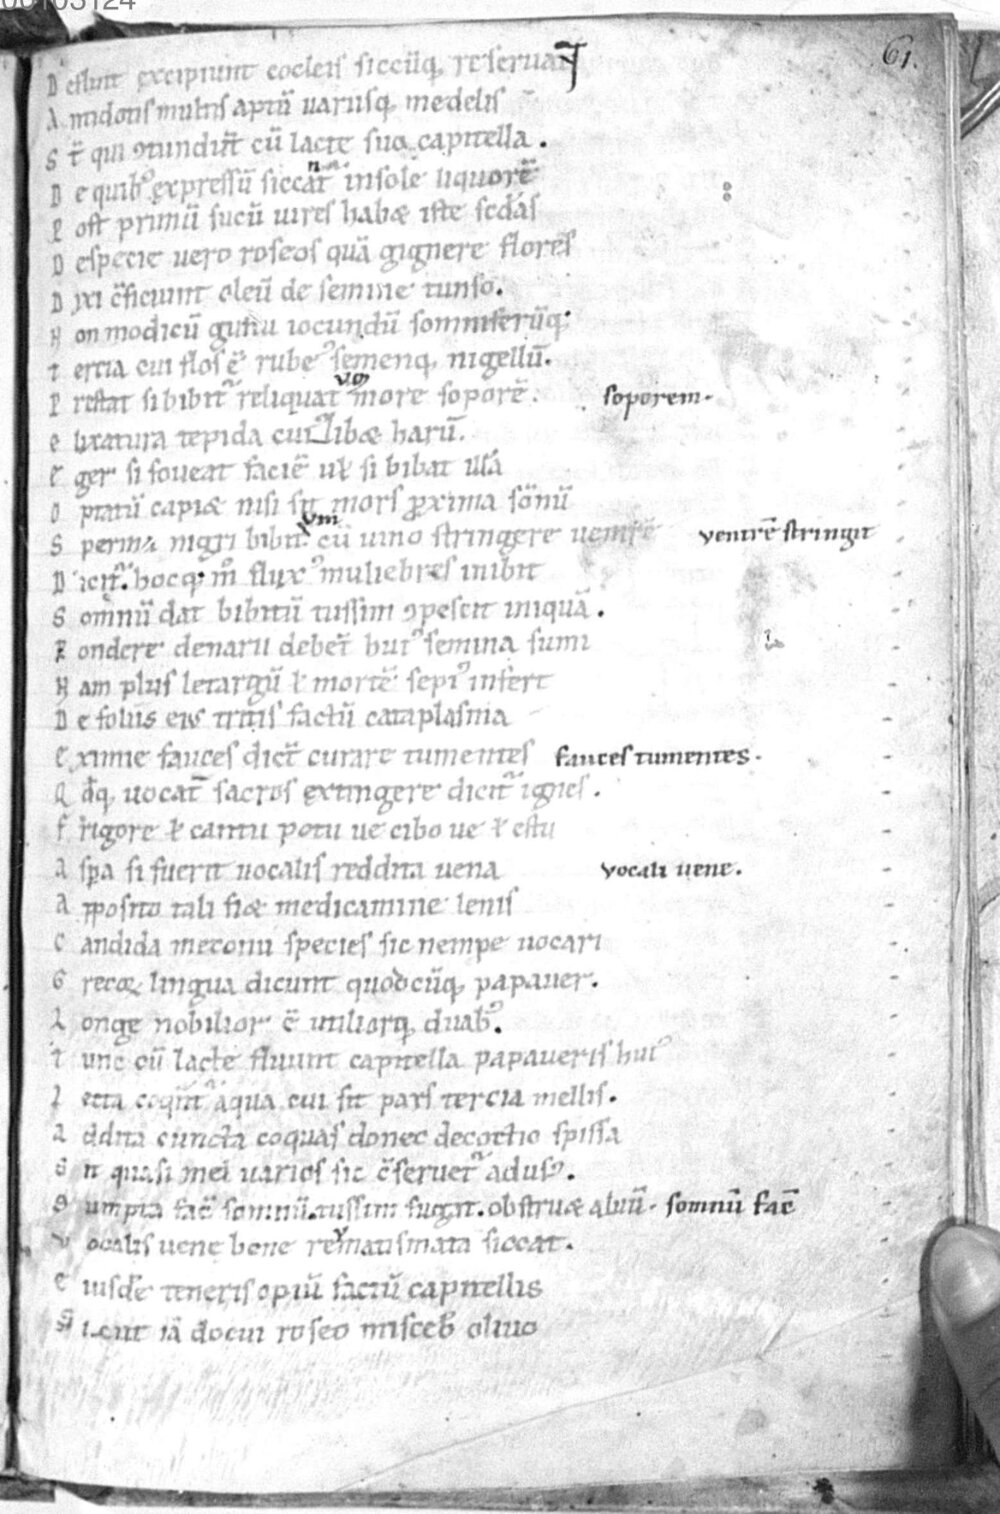 00103124
61.
D efluit excipiunt cocleis siccūq, reseruant
A ntidotis multis aptū uariisq, medelis
S t̄ qui ꝯtundūt cū lacte sua capitella .
D e quib᷒ expressū siccant insole liquorē
P ost primū sucū uires habæ iste scdás
D especie uero roseos quā gignere florēs
D ixi c̄ficiunt oleū de semine tunso.
N on modicū gustu iocundū somniferūq;
t ercia cui flos ē rube᷒ semenq, nigellū.
P restat si bibit᷑ reliquat uo more soporē . soporem.
e lixatura tepida cui libæ harū.
E ger si foueat faciē uł si bibat illā
O ptatū capiæ nisi sit mors ꝓxima sōnū
S perma nigri bibit cū uino stringere uentrē ventrē stringit
D icit᷑. hocq; m̄ flux᷒ muliebres inibit
S omnū dat bibitū tussim ꝯpescit iniquā .
P ondere denarii debet̄ hui᷒ semina sumi
N am plus letargū ł mortē sepi᷒ infert
D e foliis eius tritis factū cataplasma
E ximie fauces dict̄ curare tumentes fauces tumentes .
Q d̄q, uocat̄ sacros extingere dicit᷑ ignes .
f rigore ł cantu potu ue cibo ue ł estu
A spa si fuerit uocalis reddita uena vocali uene .
A pposito tali fiæ medicamine lenis
C andida meconii species sic nempe uocari
G recæ lingua dicunt quodcūq, papauer.
L onge nobilior ē utiliorq, duab᷒.
T unc cū lacte fluunt capitella papaueris hui᷒
L ecta coqūt᷑ áqua cui sit pars tercia mellis .
A ddita cuncta coquas donec decoctio spissa
S it quasi mel uarios sic c̄seruet᷑ adus᷒ .
S umpta fac̄ somnū.tussim fugit.obstruæ aluū . somnū fac̄
V ocalis uene bene reumatismata siccat .
E iusdē teneris opiū factū capitellis
Si icut iā docui roseo misceb᷒ oliuo